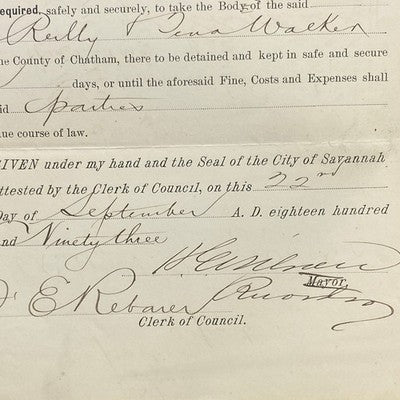 equired, safely and securely, to take the Body of the said
Reilly & Tena Walker
he County of Chatham, there to be detained and kept in safe and secure
days, or until the aforesaid Fine, Costs and Expenses shall
id parties
ue course of law.
IVEN under my hand and the Seal of the City of Savannah
ttested by the Clerk of Council, on this 22nd
Day of September A. D. eighteen hundred
nd Ninety three
Mayor,
E Rebarer
Clerk of Council.